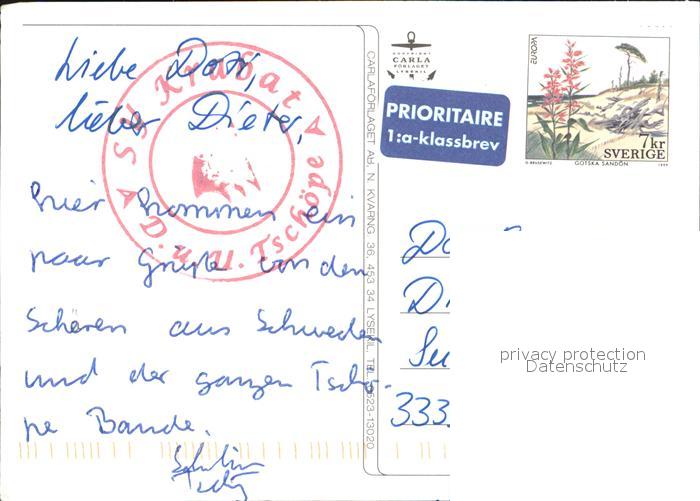 Liebe Dory,
lieber Dieter,
hier kommen ein
paar Grüße von den
Schären aus Schweden
und der ganzen Tschö-
pe Bande.
SY Krabat
D. u. U. Tschöpe
CARLAFÖRLAGET AB, N KVARNG 36, 453 34 LYSEKIL, TEL 0523-13020
COPYRIGHT
CARLA
FÖRLAGET
LYSEKIL
PRIORITAIRE
1:a-klassbrev
EUROPA
7kr
SVERIGE
GOTSKA SANDÖN
1999
D
Di
Su
333
privacy protection
Datenschutz